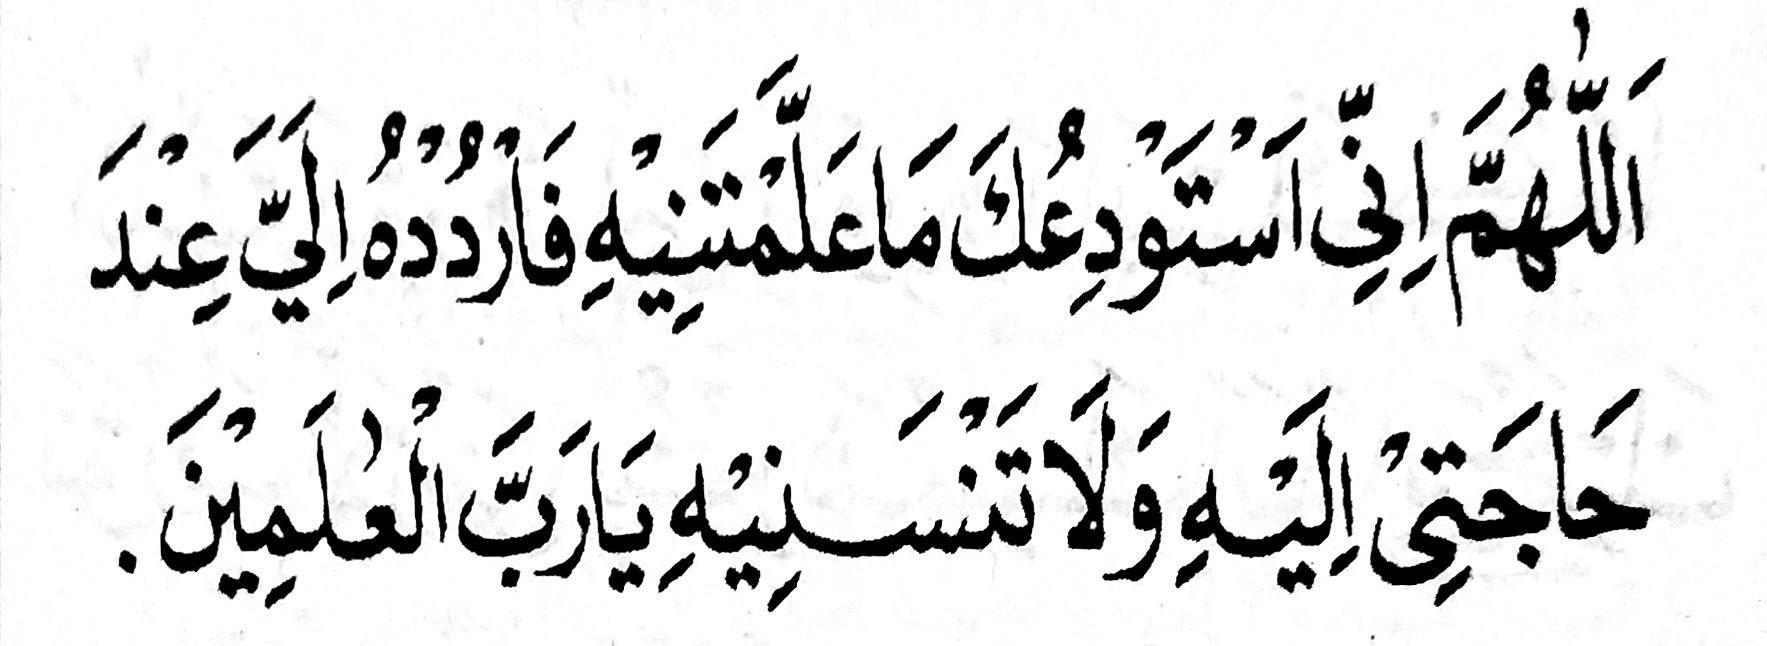 اَللّٰهُمَّ اِنِّي اَسْتَوْدِعُكَ مَا عَلَّمْتَنِيْهِ فَارْدُدْهُ اِلَيَّ عِنْدَ
حَاجَتِيْ اِلَيْهِ وَلَا تَنْسَنِيْهِ يَا رَبَّ الْعٰلَمِيْنَ.